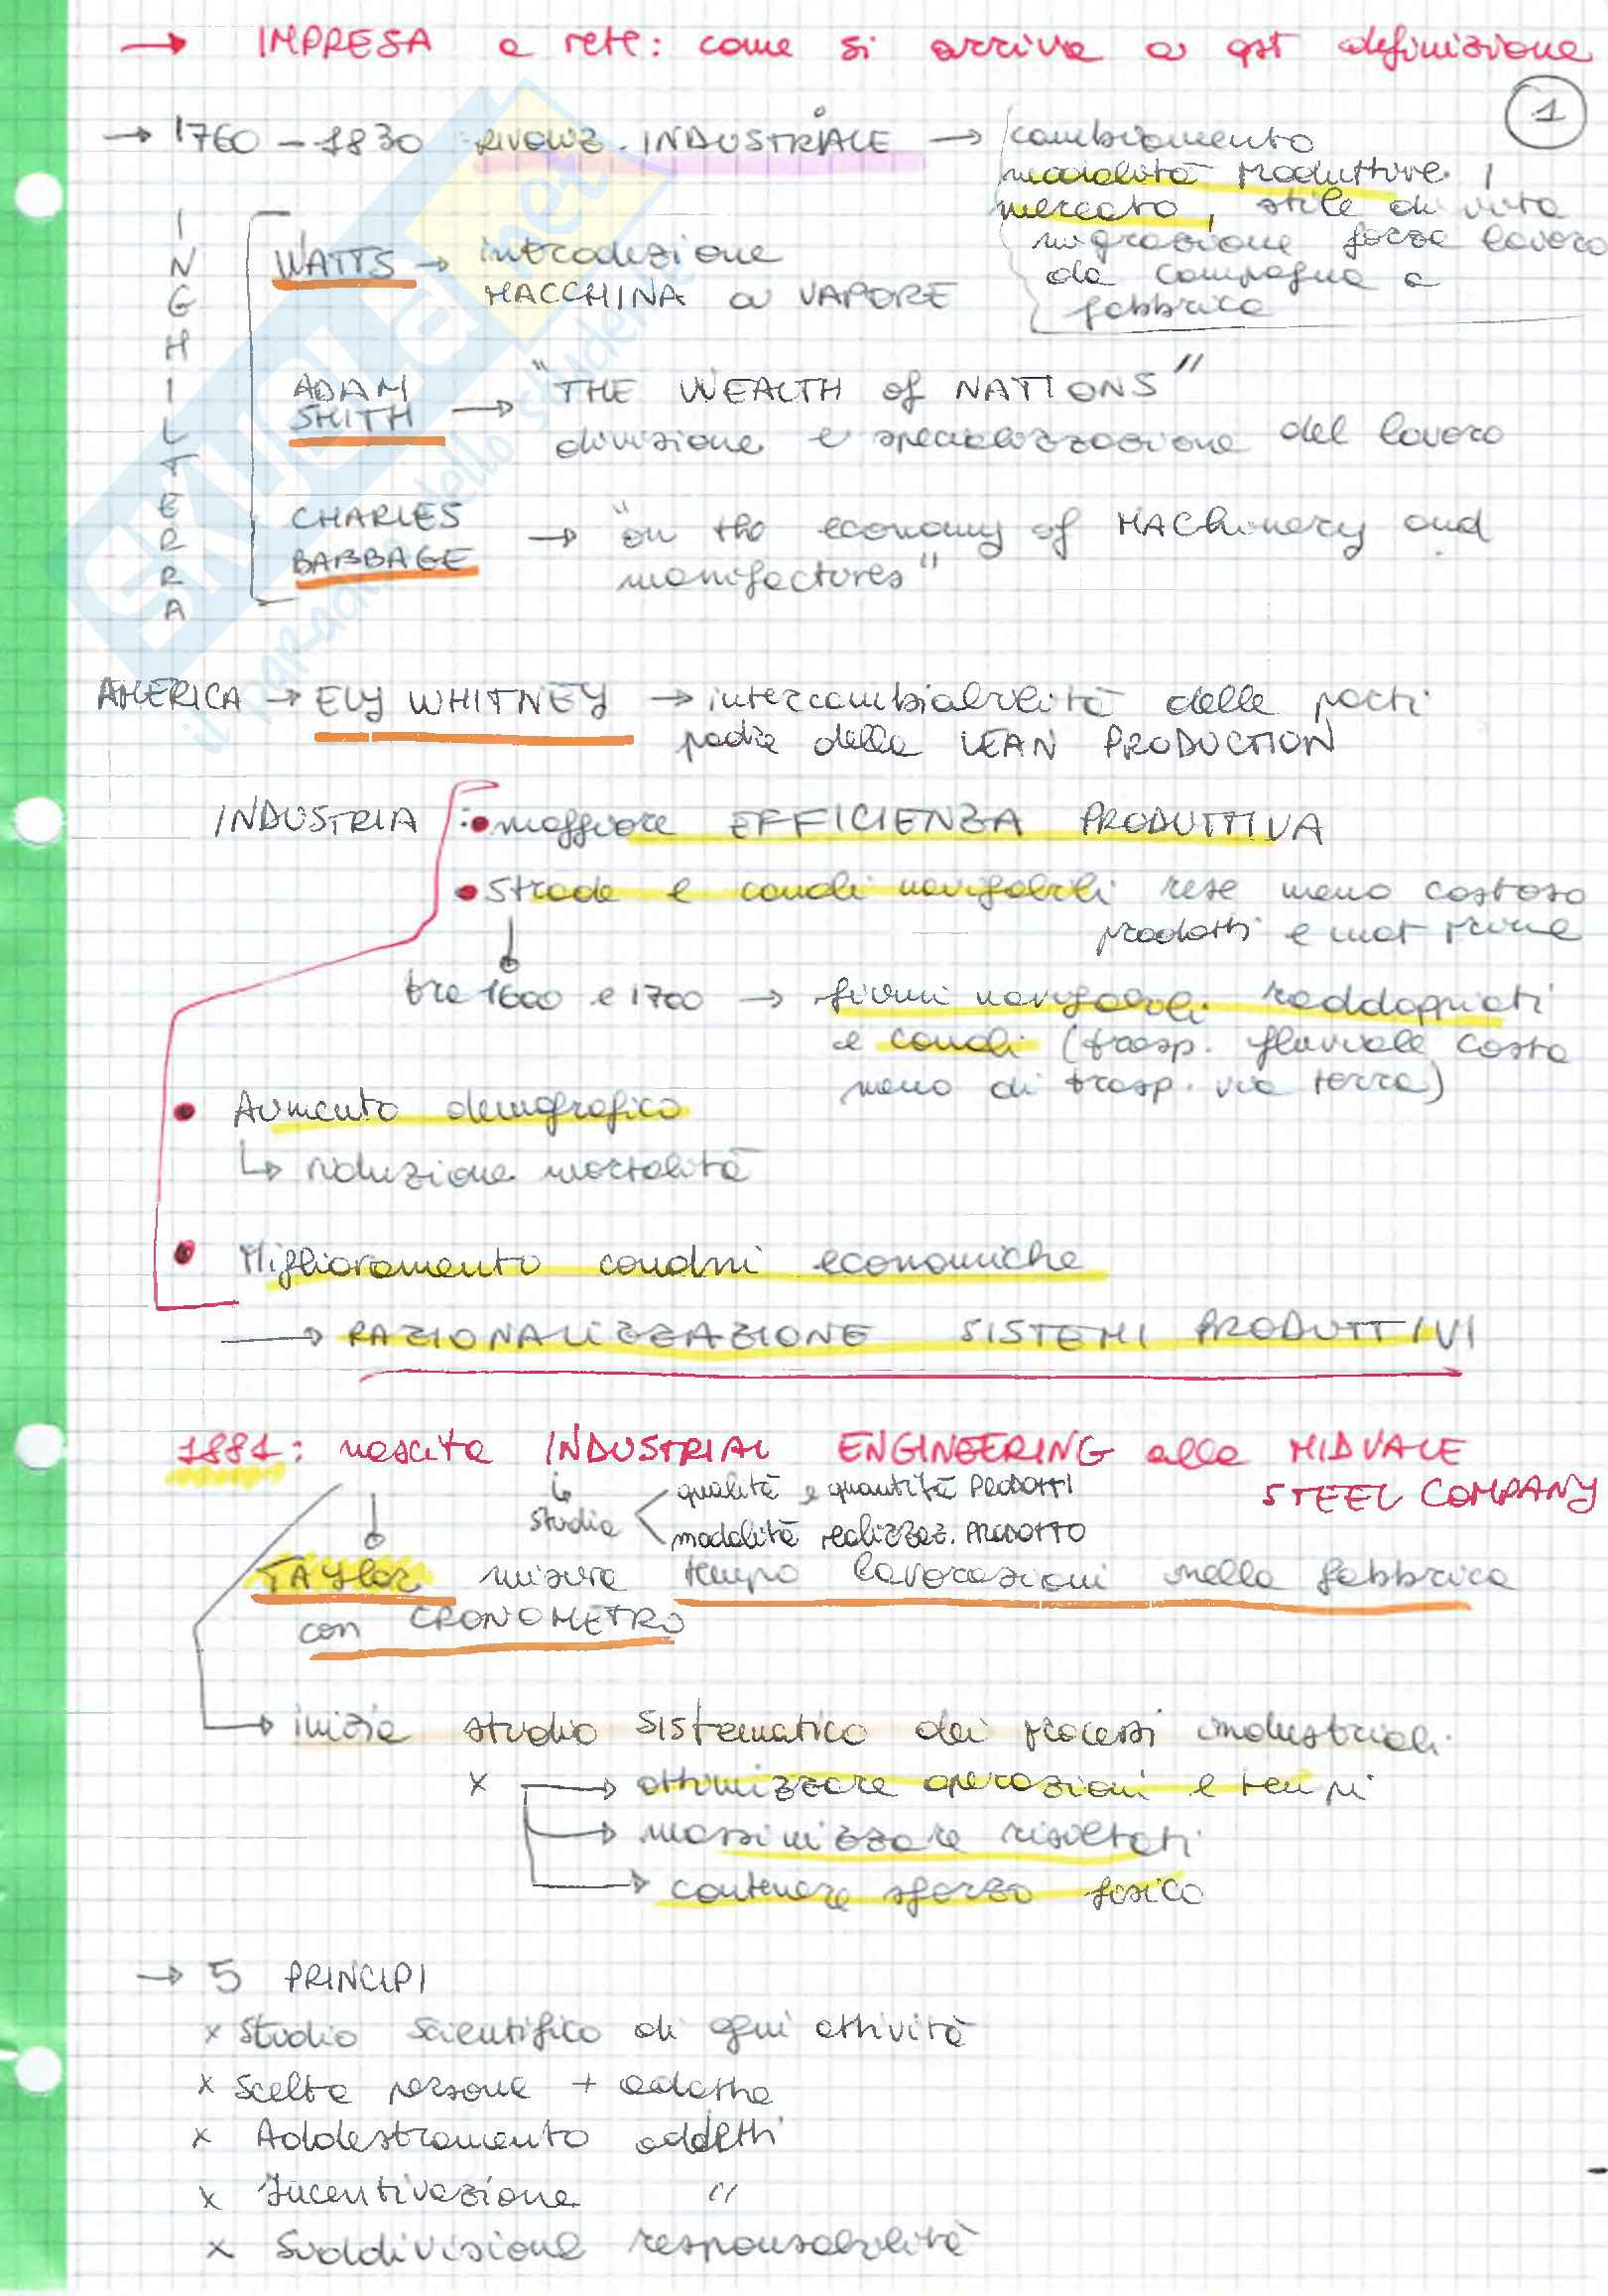 → IMPRESA a rete: come si arriva a qst definizione
1
→ 1760 - 1830 RIVOLUZ. INDUSTRIALE → cambiamento
modalità produttive,
mercato, stile di vita
migrazione forza lavoro
da campagna a
fabbrica
INGHILTERRA
WATTS → introduzione
MACCHINA a VAPORE
ADAM
SMITH → "THE WEALTH of NATIONS"
divisione e specializzazione del lavoro
CHARLES
BABBAGE → "on the economy of MAChinery and
manifactures"
AMERICA → ELY WHITNEY → intercambiabilità delle parti
padre della LEAN PRODUCTION
INDUSTRIA : • maggiore EFFICIENZA PRODUTTIVA
• Strade e canali navigabili rese meno costoso
prodotti e mat prime
tra 1600 e 1700 → fiumi navigabili raddoppiati
e canali (trasp. fluviale costa
meno di trasp. via terra)
• Aumento demografico
↳ riduzione mortalità
• Miglioramento condni economiche
→ RAZIONALIZZAZIONE SISTEMI PRODUTTIVI
1881: nascita INDUSTRIAL ENGINEERING alla MIDVALE
STEEL COMPANY
studia < qualità e quantità PRODOTTI
modalità realizzaz. PRODOTTO
TAYlor misura tempo lavorazioni nella fabbrica
con CRONOMETRO
→ inizia studio sistematico dei processi industriali
x → ottimizzare operazioni e tempi
→ massimizzare risultati
→ contenere sforzo fisico
→ 5 PRINCIPI
x Studio scientifico di ogni attività
x Scelta persone + adatte
x Addestramento addetti
x Incentivazione "
x Suddivisione responsabilità
SKUOLA.net
il paradiso dello studente